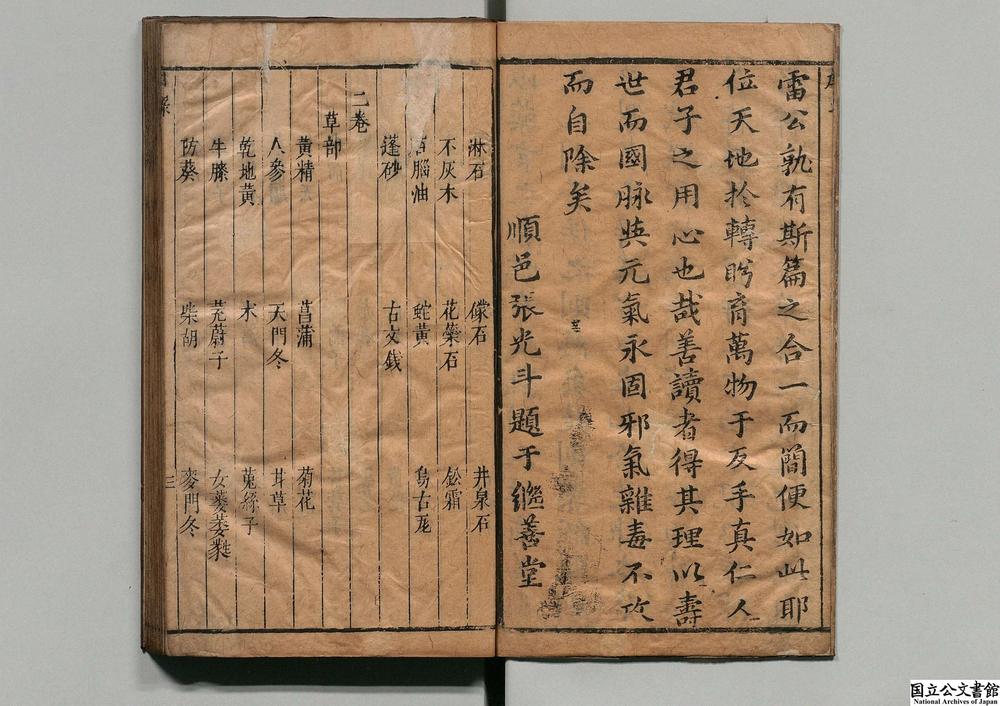 雷公孰有斯篇之合一而簡便如此耶
位天地扵轉眄育萬物于反手真仁人
君子之用心也哉善讀者得其理以壽
世而國脉與元氣永固邪氣雜毒不攻
而自除矣
順邑張光斗題于繼善堂
淋石 礞石 井泉石
不灰木 花藥石 鈆霜
腦油 蛇黃 烏古瓦
蓬砂 古文錢
二卷
草部
黃精 菖蒲 菊花
人參 天門冬 甘草
乾地黃 术 菟絲子
牛膝 茺蔚子 女萎萎蕤
防葵 柴胡 麥門冬
三
国立公文書館
National Archives of Japan